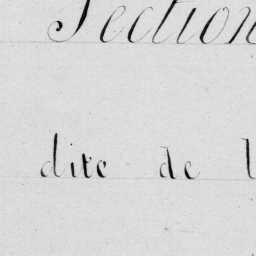 Section
dite de l